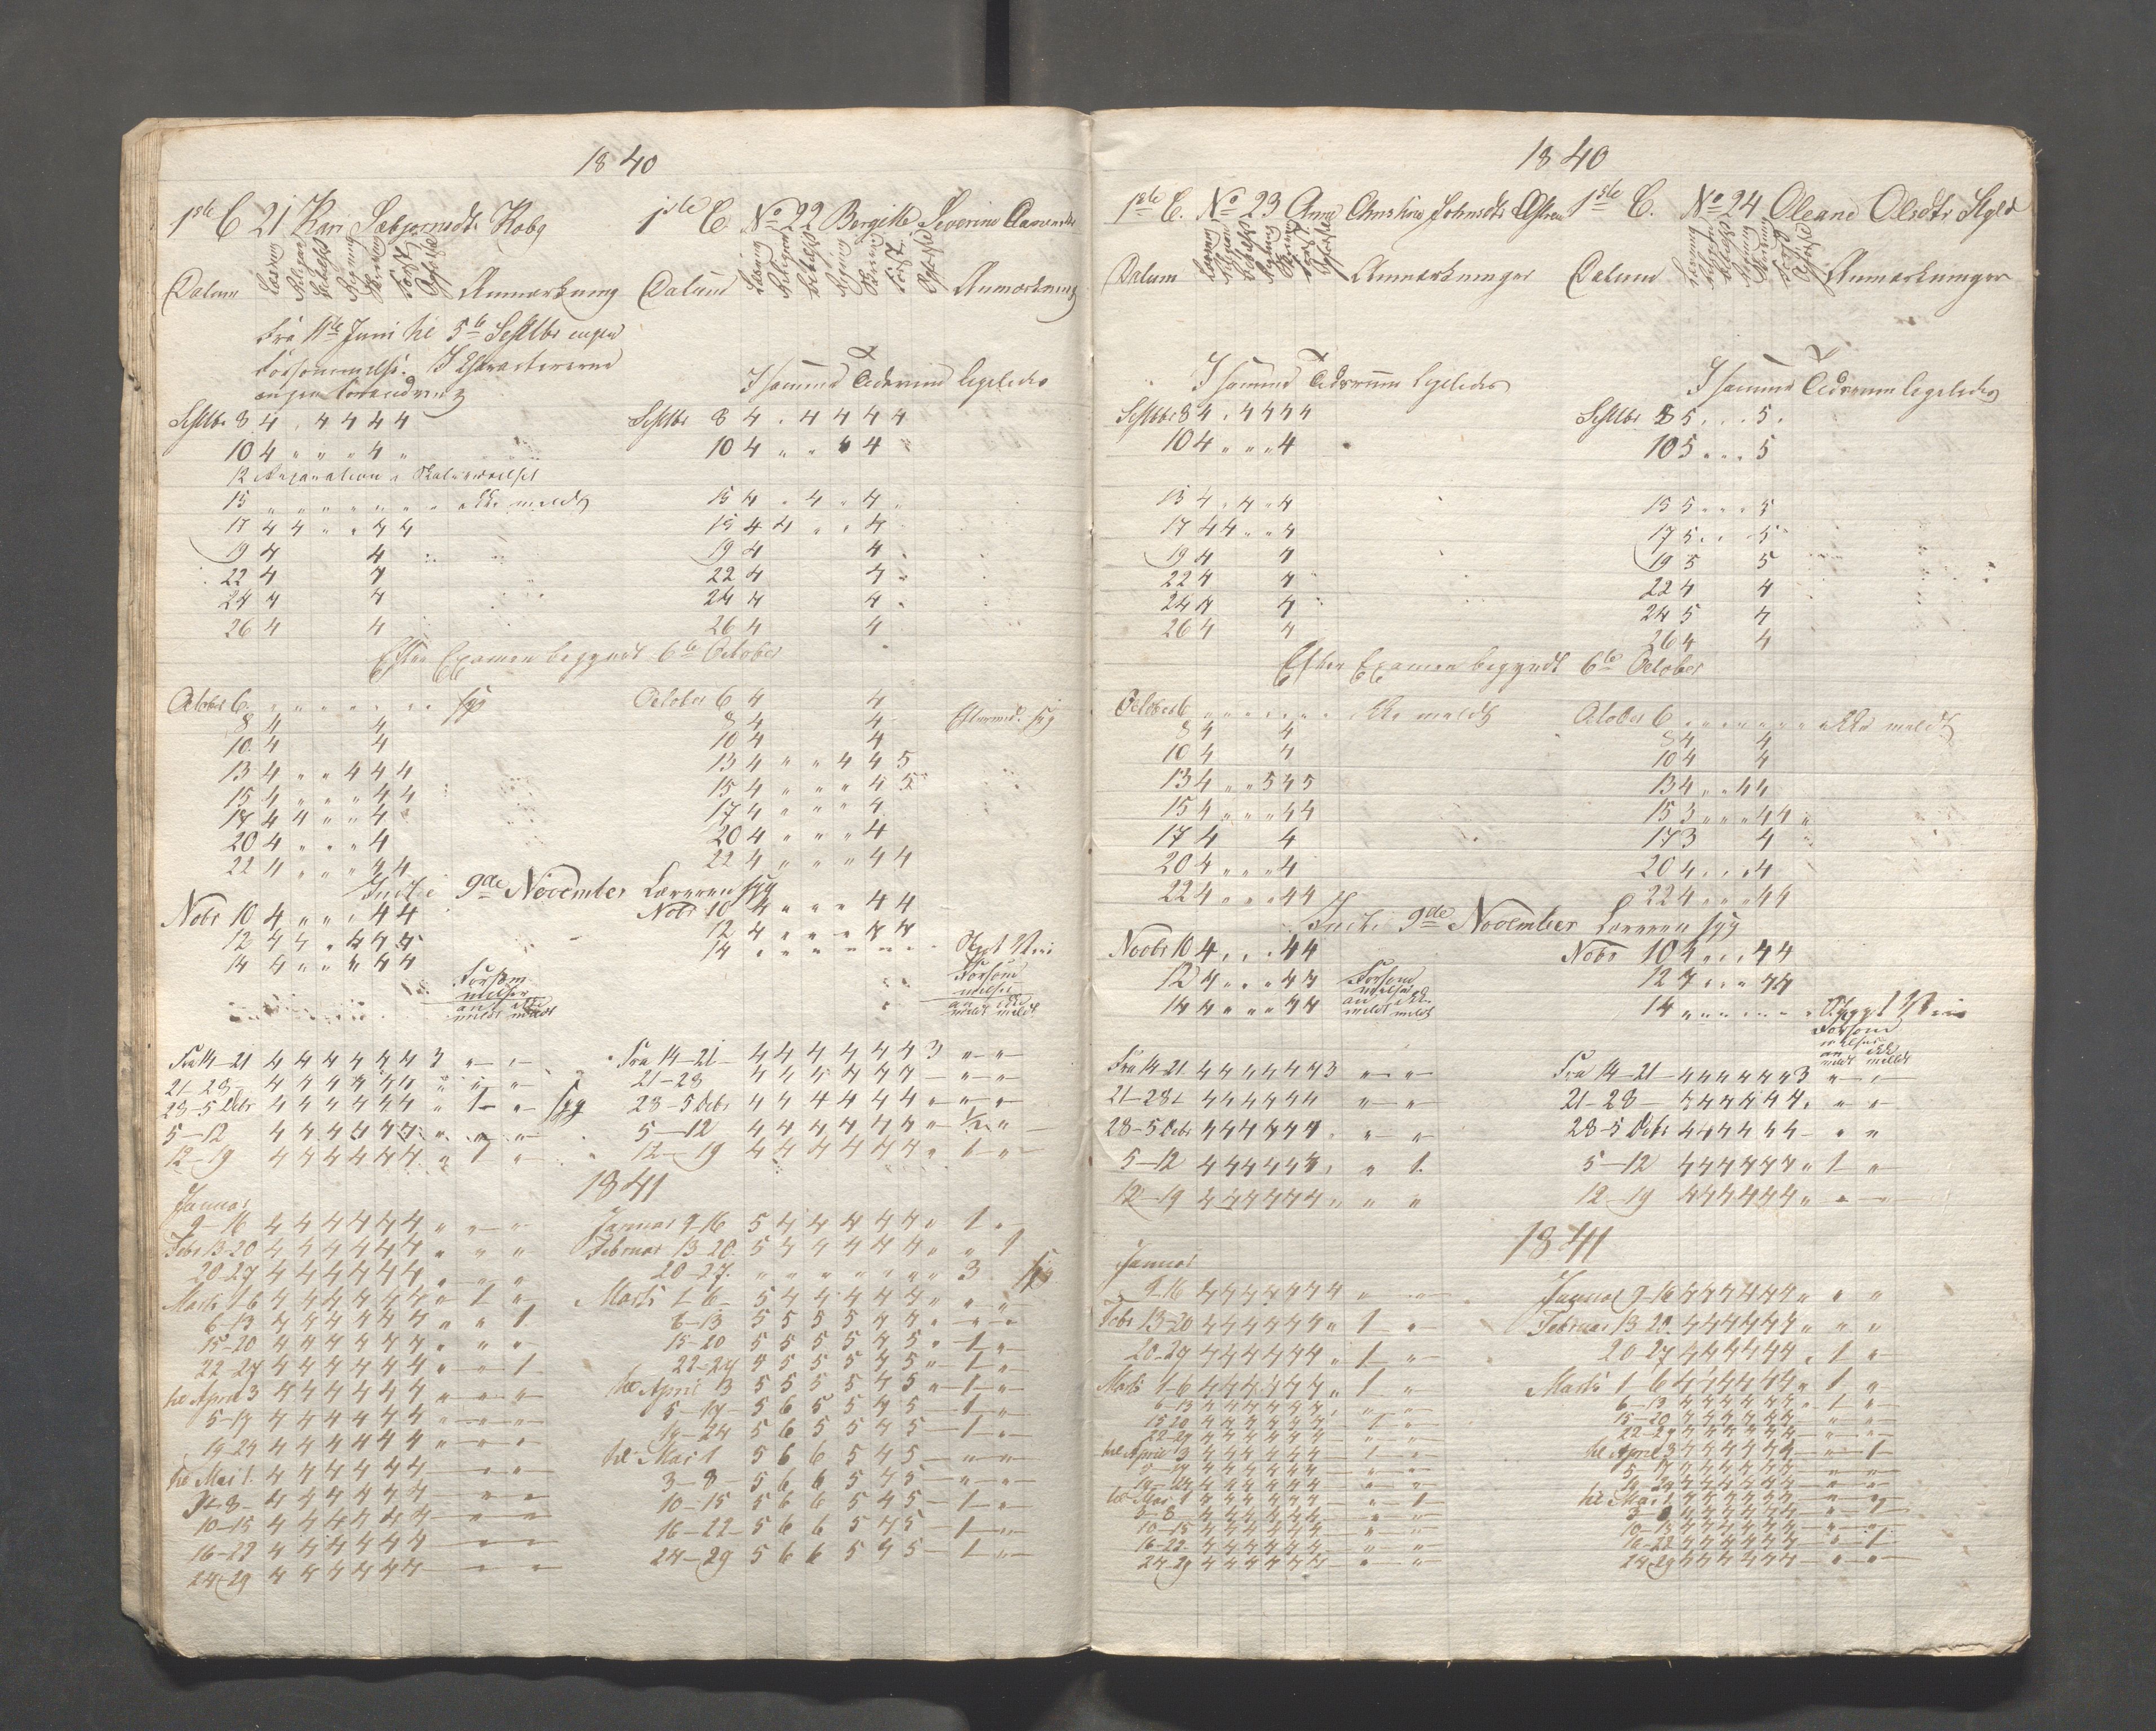 1840
1ste C 21 Kari Sæbjørnsdt.
Datum Læsning Religion Anmærkning
Fra 11te Juni til 5te Septbr ingen
Forsømmelse. I Characteererne
ingen Forandring
Septbr 8 4 . 4 4 4 4
10 4 " " " 4 "
12 Reparation
15 " " " " " " " ikke meldt
17 4 4 " " 4 4
19 4 4
22 4 4
24 4 4
26 4 4
Efter Examen begyndt 6te October
October 6 " " " " " " " syg
8 4 4
10 4 4
13 4 " " 4 4 4
15 4 " " " 4 4
17 4 4 " " 4
20 4 " " " 4
22 4 " " " 4 4
Indtil 9de November Læreren syg
Nobr 10 4 " " " 4 4
12 4 4 " 4 4 4
14 4 " " " 4 4
Forsøm
melser
an ikke
meldt meldt
Fra 14-21 4 4 4 4 4 4 3 " "
21-28 4 4 4 4 4 4 " " "
28-5 Debr 4 4 4 4 4 4 " 1 " syg
5-12 4 4 4 4 4 4 " " "
12-19 4 4 4 4 4 4 " 1 "
Januar
9-16 4 4 4 4 4 4 " " "
Febr 13-20 4 4 4 4 4 4 " " "
20-27 4 4 4 4 4 4 " " "
Marts 1-6 4 4 4 4 4 4 " 1 "
6-13 4 4 4 4 4 4 " " 1
15-20 4 4 4 4 4 4 " " "
22-27 4 4 4 4 4 4 " " 1
til April 3 4 4 4 4 4 4 " " "
5-17 4 4 4 4 4 4 " " "
19-24 4 4 4 4 4 4 " " "
til Mai 1 4 4 4 4 4 4 " "
3-8 4 4 4 4 4 4 " "
10-15 4 4 4 4 4 4 " "
16-22 4 4 4 4 4 4 " "
24-29 4 4 4 4 4 4 " "
1ste C. No 22 Bergitte Severine
Datum Læsning Religion Anmærkning
I samme Tidsrum ligeledes
Septbr 8 4 . 4 4 4 4
10 4 " " 4 "
15 4 " 4 " 4
4 4 " " 4
19 4 4
22 4 4
24 4 4
26 4 4
October 6 4 4
8 4 4 Eftermd. syg
10 4 4
13 4 " " 4 4 5
15 4 " " " 4 5
17 4 " " " 4
20 4 " " " 4
22 4 " " " 4 4
Nobr 10 4 " " " 4 4
12 4 " " " 4 4
14 " " " " " " "
Forsøm
melser
an ikke
meldt meldt
Fra 14-21 4 4 4 4 4 4 3 " "
21-28 4 4 4 4 4 4 " "
28-5 Debr 4 4 4 4 4 4 " " "
5-12 4 4 4 4 4 4 " 1/2 "
12-19 4 4 4 4 4 4 " 1 "
1841
Januar 9-16 5 4 4 4 4 4 " 1 "
Februar 13-20 5 4 4 4 4 4 " " 1
20-27. " " " " " " " 3 syg
Marts 1-6 5 4 4 4 4 4 " " "
6-13 5 5 5 5 4 4 " " "
15-20 5 5 5 5 4 5 " 1 "
22-27 5 5 5 5 4 5 " 1 "
til April 3 5 5 5 5 4 5 " 1 "
5-17 5 6 5 5 4 5 1 "
19-24 5 6 5 5 4 5 1 "
til Mai 1 5 6 6 5 4 5 " "
3-8 5 6 6 5 4 5 " "
10-15 5 6 6 5 4 5 1 "
16-22 5 6 6 5 4 5 1 "
24-29 5 6 6 5 4 5 1 "
1840
1ste C. No 23 Anne Christine Johnsdtr
Datum Læsning Religion Anmærkninger
I samme Tidsrum ligeledes
Septbr 8 4 . 4 4 4 4
10 4 " " " 4
15 4 . 4 . 4
17 4 4 " " 4
19 4 4
22 4 4
24 4 4
26 4 4
Efter Examen begyndt 6te October
October 6 " " " " " " " ikke meldt
8 4 4
10 4 4
13 4 " " 5 4 5
15 4 " " " 4 4
17 4 4
20 4 " " " 4
22 4 " " " 4 4
Indtil 9de November Læreren syg
Novbr 10 4 " " " 4 4
12 4 " " " 4 4
14 4 " " " 4 4
Forsøm
melser
an ikke
meldt meldt
Fra 14-21 4 4 4 4 4 4 3 " "
21-28 4 4 4 4 4 4 " "
28-5 Debr 4 4 4 4 4 4 " " "
5-12 4 4 4 4 4 4 " " 1
12-19 4 4 4 4 4 4 " " "
Januar
9-16 4 4 4 4 4 4 " "
Febr 13-20 4 4 4 4 4 4 " 1 "
20-27 4 4 4 4 4 4 " 1 "
Marts 1-6 4 4 4 4 4 4 " 1 "
6-13 4 4 4 4 4 4 " " "
15 20 4 4 4 4 4 4 1 "
22-27 4 4 4 4 4 4 " "
til April 3 4 4 4 4 4 4 1 "
5-17 4 4 4 4 4 4 " "
19-24 4 4 4 4 4 4 " "
til Mai 1 4 4 4 4 4 4 " 1
3-8 4 4 4 4 4 4 " "
10-15 4 4 4 4 4 4 " "
16-22 4 4 4 4 4 4 " "
24-29 4 4 4 4 4 4 " "
1ste C. No 24 Oleane Olsdtr
Datum Læsning Religion Anmærkninger
I samme Tidsrum ligeledes
Septbr 8 5 . . . 5 .
10 5 . . . 5
15 5 . . . 5
17 5 . . 5
19 5 5
22 4 4
24 5 4
26 4 4
October 6 " " " " " " " ikke meldt
8 4 4
10 4 4
13 4 " " 4 4
15 3 " " " 4 4 "
17 3 4
20 4 " " " 4
22 4 " " " 4 4
Nobr 10 4 " " " 4 4
12 4 " " " 4 4
14 " " " " " " "
Forsøm
melser
an ikke
meldt meldt
Fra 14-21 4 4 4 4 4 4 3 " "
21-28 4 4 4 4 4 4 " " "
28-5 Debr 4 4 4 4 4 4 " "
5-12 4 4 4 4 4 4 " 1 "
12-19 4 4 4 4 4 4 " " "
1841
Januar 9-16 4 4 4 4 4 4 " " "
Februar 13-20 4 4 4 4 4 4 " " "
20-27 4 4 4 4 4 4 " 1 "
Marts 1-6 4 4 4 4 4 4 " 1 "
6-13 4 4 4 4 4 4 " 1 "
15-20 4 4 4 4 4 4 " "
22-27 4 4 4 4 4 4 " "
til April 3 4 4 4 4 4 4 " 1
5-17 4 4 4 4 4 4 " "
19-24 4 4 4 4 4 4 " "
til Mai 1 4 4 4 4 4 4 " "
3-8 4 4 4 4 4 4 " 1
10-15 4 4 4 4 4 4 " "
16-22 4 4 4 4 4 4 " 1
24-29 4 4 4 4 4 4 " "